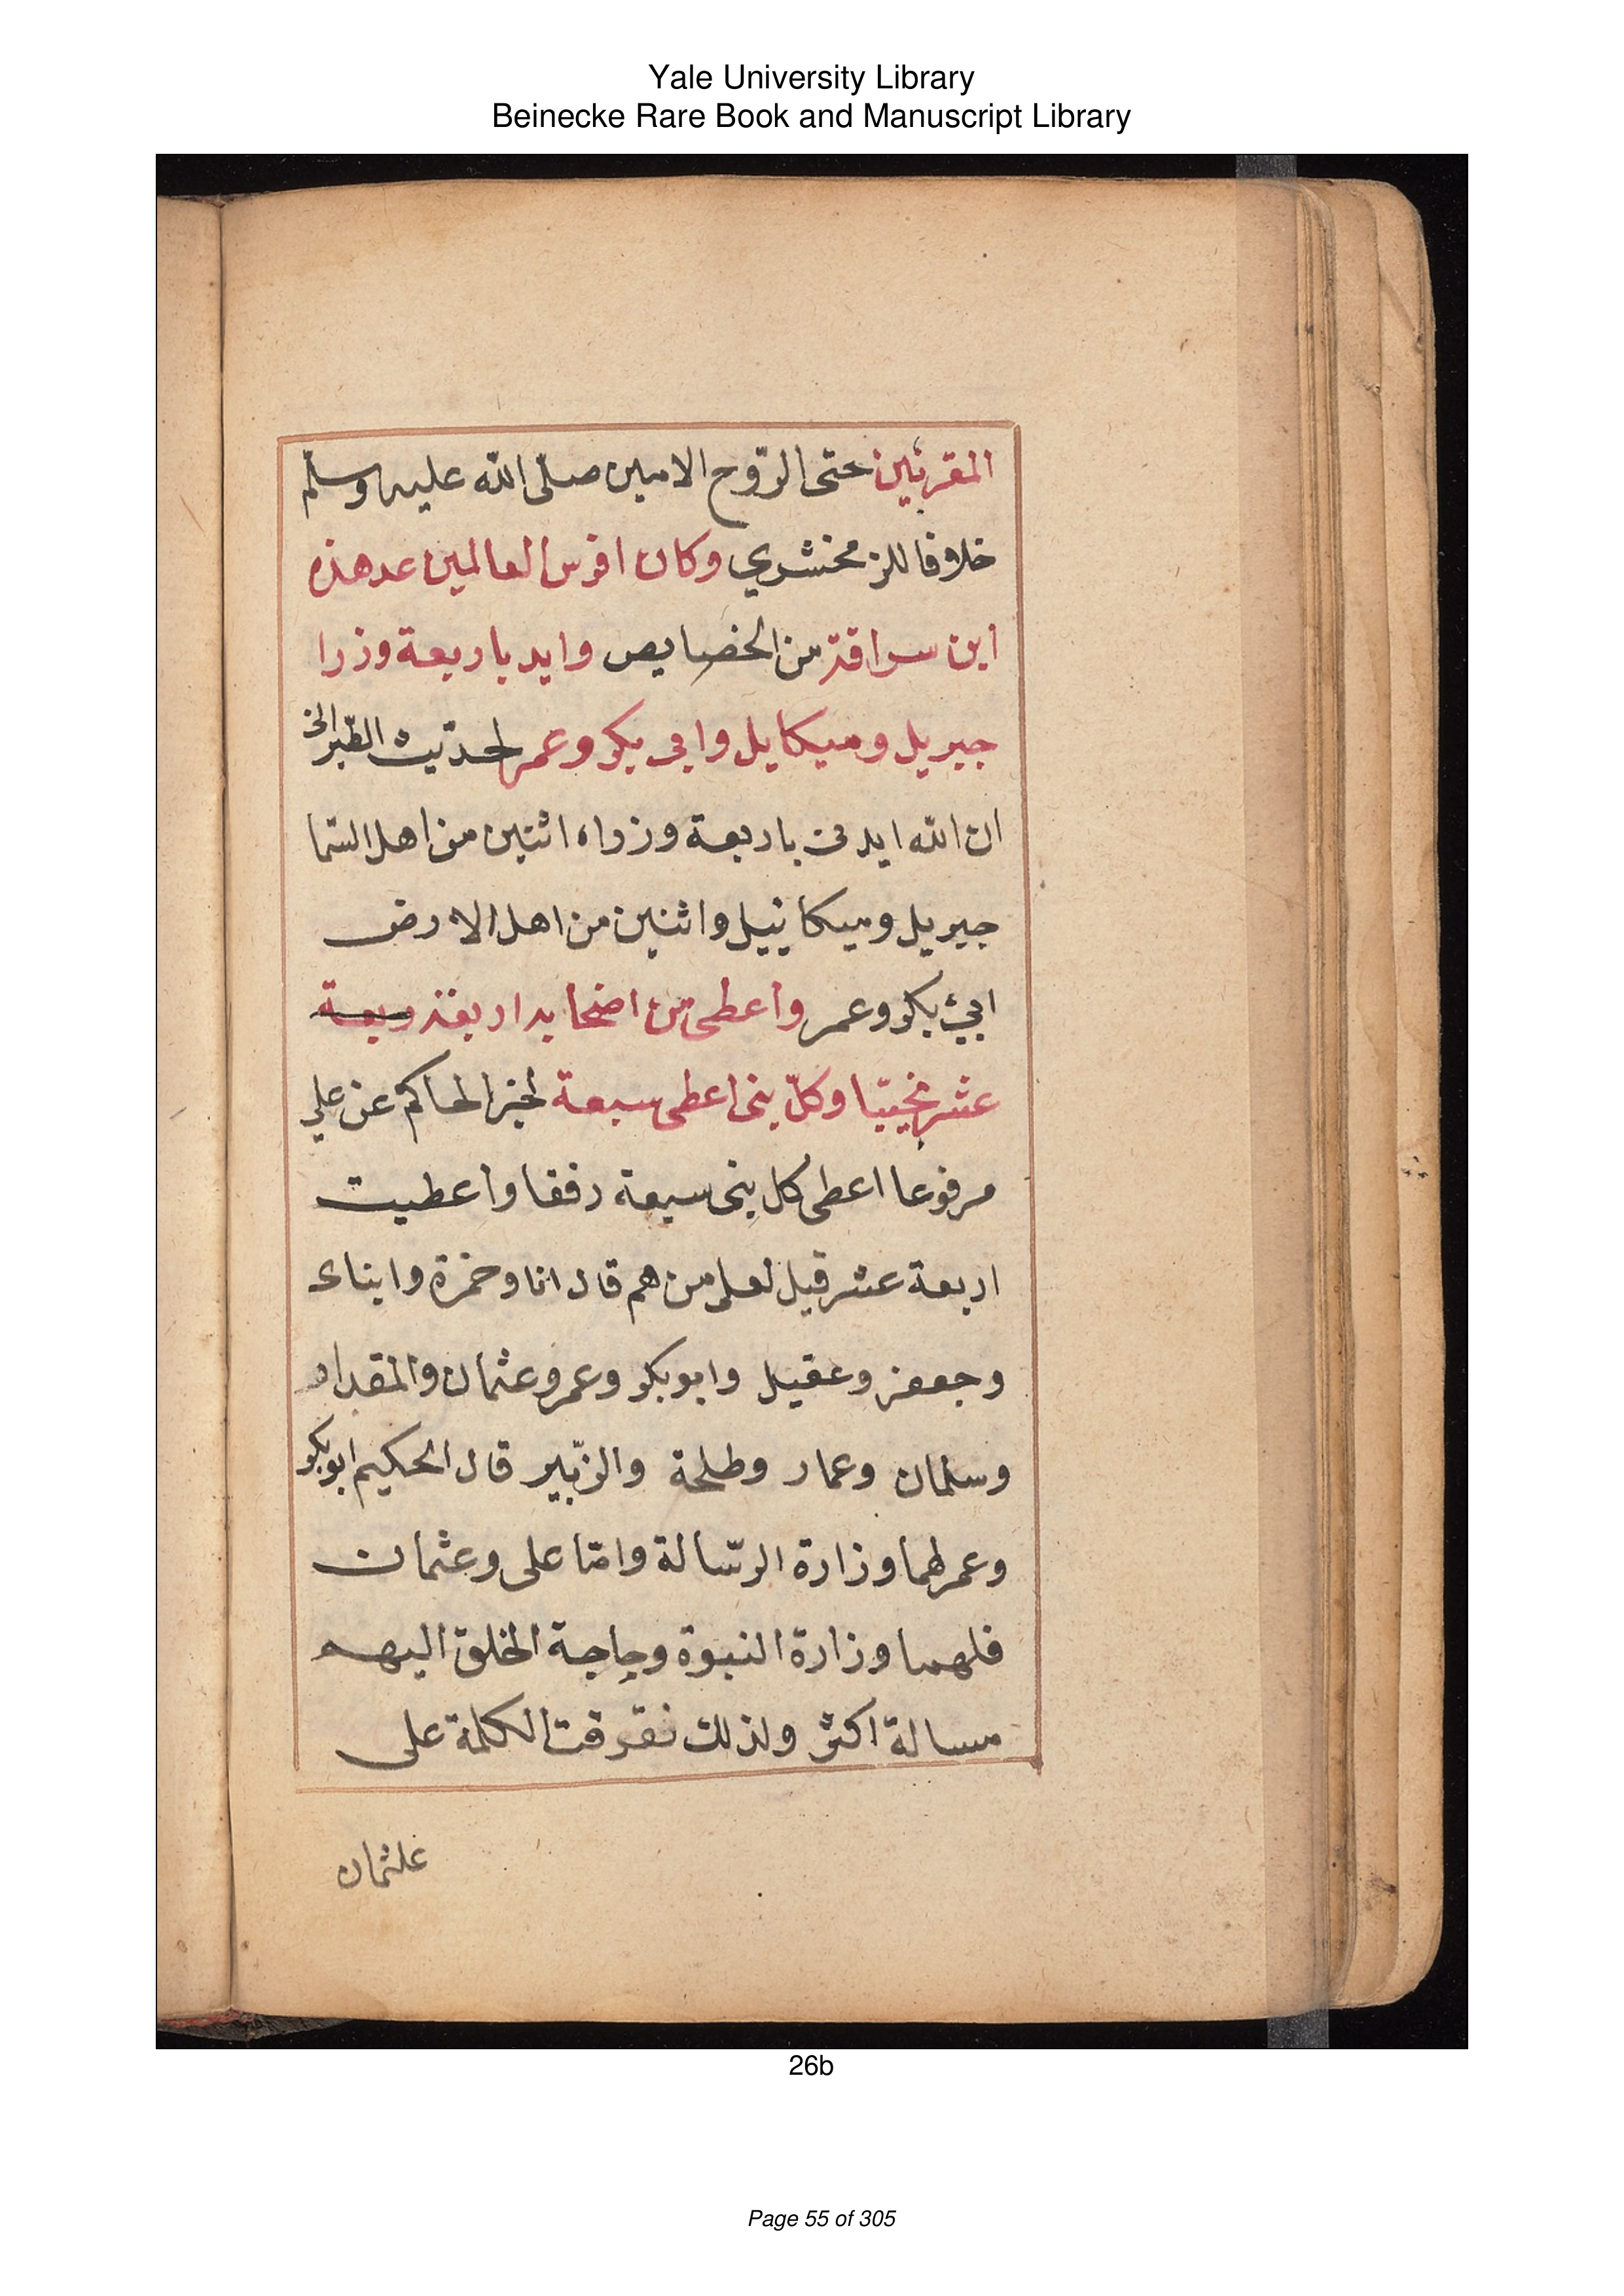 Yale University Library
Beinecke Rare Book and Manuscript Library
المقربين حتى الرّوح الامين صلّى الله عليه وسلّم
خلافا للزمخشري وكان افرس العالمين عد هذه
ابن سراقة من الخصايص وايد باربعة وزرا
جبريل وميكايل وابى بكر وعمر لحديث الطّبرانى
ان الله ايدنى باربعة وزراء اثنين من اهل السّما
جبريل وميكائيل واثنين من اهل الارض
ابي بكر وعمر واعطى من اصحابه اربعة
عشر نجيبّا وكلّ نبى اعطى سبعة لخبر الحاكم عن علي
مرفوعا اعطى كل نبى سبعة رفقا واعطيت
اربعة عشر قيل لعلي من هم قال انا وحمزة وابناى
وجعفر وعقيل وابو بكر وعمر وعثمان والمقداد
وسلمان وعمار وطلحة والزّبير قال الحكيم ابو بكر
وعمر لهما وزارة الرسّالة وامّا على وعثمان
فلهما وزارة النبوة وحاجة الخلق اليهم
مسالة اكثر ولذلك تفرقت الكلمة على
علثمان
26b
Page 55 of 305